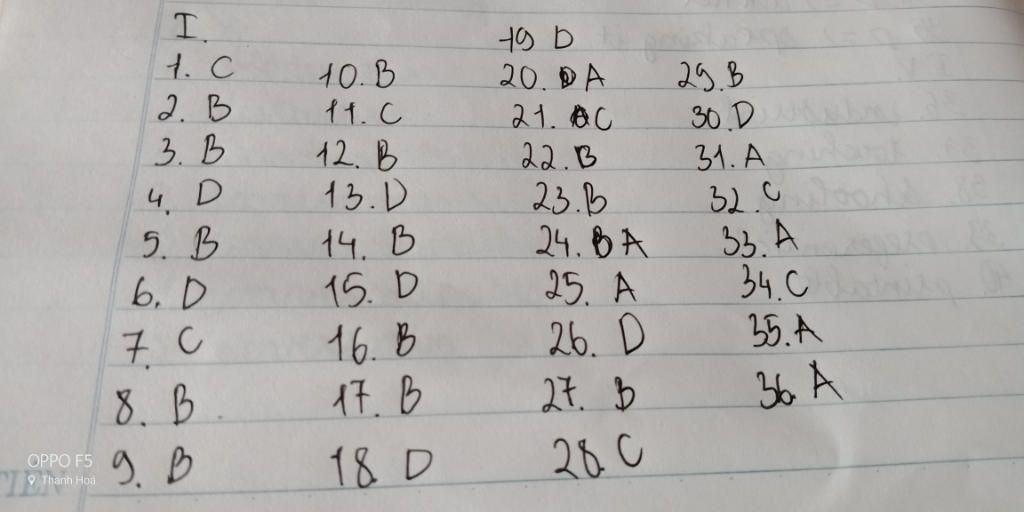 I.
1. C
2. B
3. B
4. D
5. B
6. D
7. C
8. B
9. B
10. B
11. C
12. B
13. D
14. B
15. D
16. B
17. B
18. D
19 D
20. A
21. C
22. B
23. B
24. A
25. A
26. D
27. B
28. C
29. B
30. D
31. A
32. C
33. A
34. C
35. A
36. A
OPPO F5
Thanh Hoá
TIEN